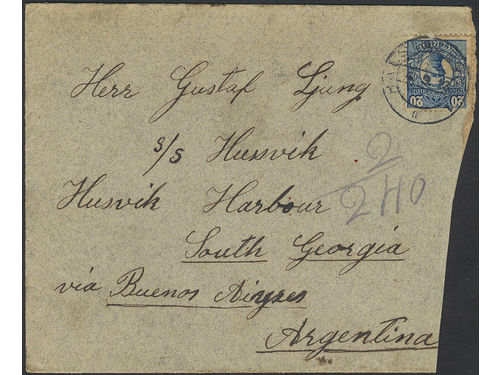 Herr Gustaf Ljung
s/s Hussvik
Husvik Harbour
South Georgia
via Buenos Aigres
Argentina
2/240
20 20